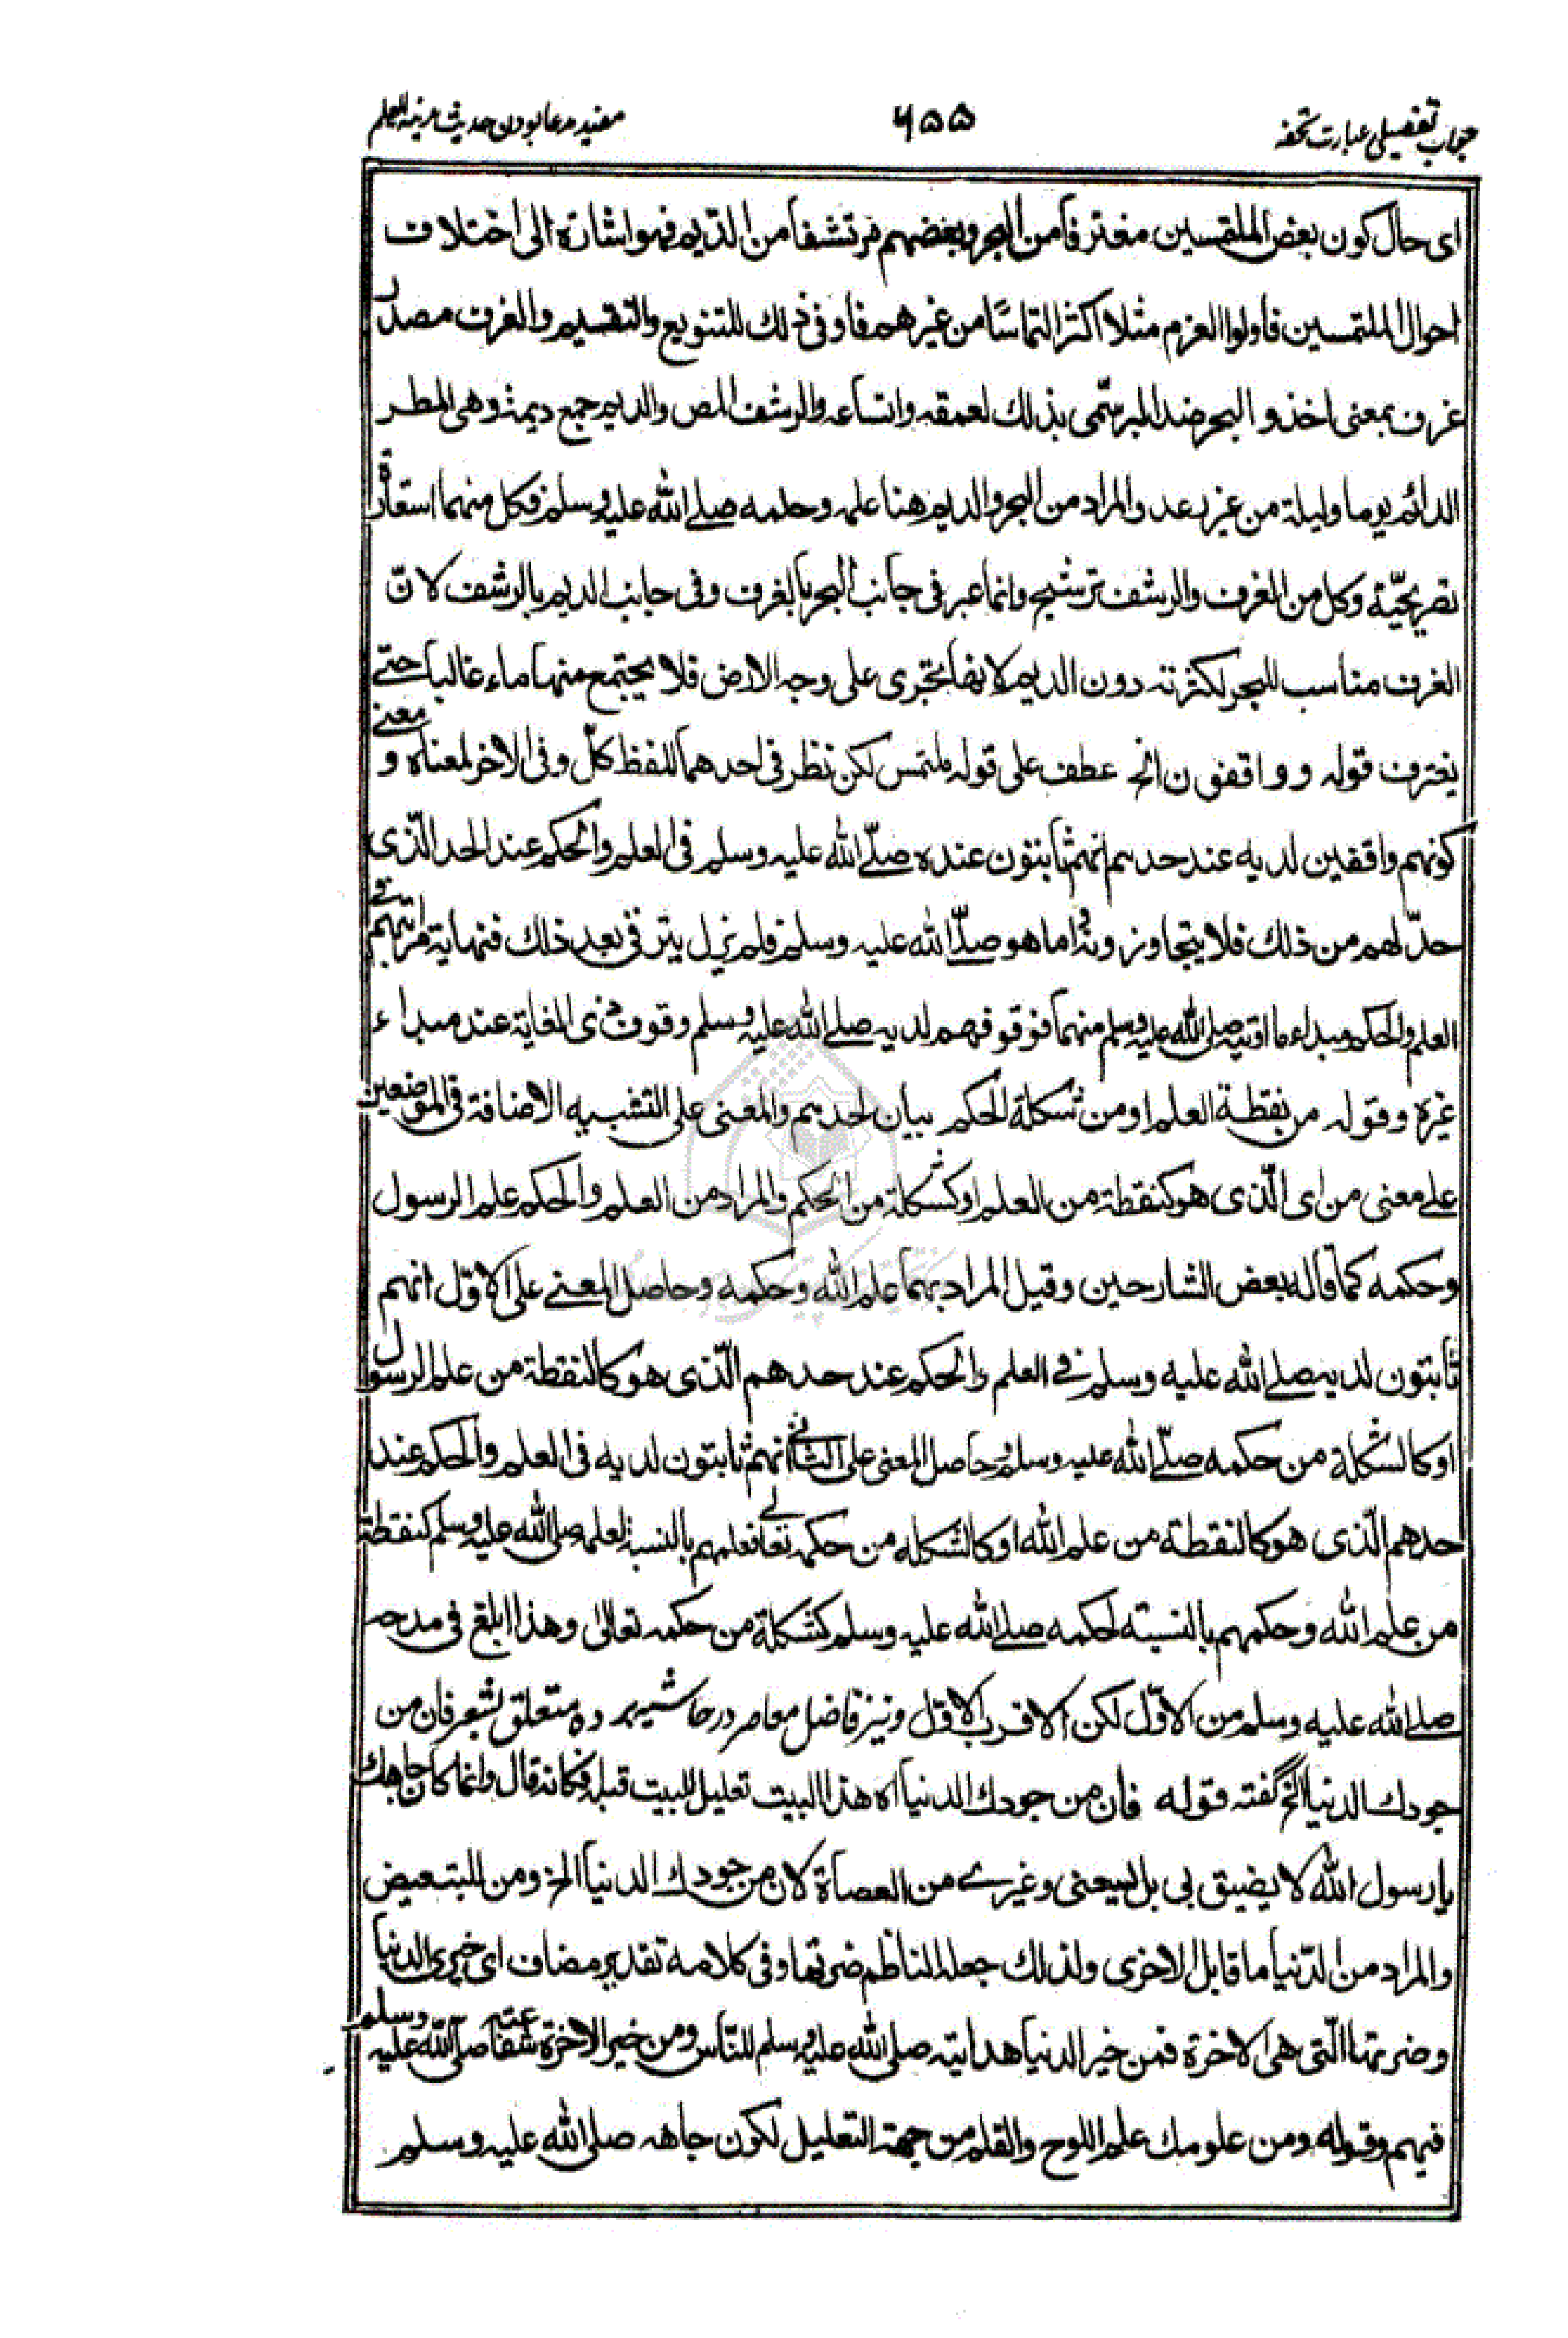 جواب تفصیلی عبارت تحفه
۶۵۵
مفید مدعا بودن حدیث مدینة العلم
ای حال کون بعض الملتمسین مغترفا من البحر وبعضهم مرتشفا من الدّیم فهو اشارة الی اختلاف
احوال الملتمسین فاولوا العزم مثلا اکثر التماسًا من غیرهم فاو فی ذلك للتنویع والتقسیم والغرف مصدر
غرف بمعنی اخذ و البحر ضد البر سمّی بذلك لعمقه واتساعه والرشف المص والدیم جمع دیمة وهی المطر
الدائم یوما ولیلة من غیر رعد والمراد من البحر والدیم هنا علمه وحلمه صلی الله علیه وسلم فکل منهما استعارة
تصریحیّة وکل من الغرف والرشف ترشیح وانما عبر فی جانب البحر بالغرف وفی جانب الدیم بالرشف لانّ
الغرف مناسب للبحر لکثرته دون الدیم لانها تجری علی وجه الارض فلا یجتمع منها ماء غالبا حتی
یغترف قوله و واقفون الخ عطف علی قوله ملتمس لکن نظر فی احدهما للفظ کلّ وفی الاخر لمعناه و معنی
کونهم واقفین لدیه عند حدهم انهم ثابتون عنده صلّی الله علیه وسلم فی العلم والحکم عند الحد الّذی
حدّ لهم من ذلك فلا یتجاوزونه واما هو صلّی الله علیه وسلم فلم یزل یترقی بعد ذلك فنهایة مراتبهم فی
العلم والحکم مبداء ما اوتیه صلی الله علیه وسلم منهما فوقوفهم لدیه صلی الله علیه وسلم وقوف ذی الغایة عند مبداء
غیره وقوله من نقطة العلم او من شکلة الحکم بیان لحدهم والمعنی علی التشبیه الاضافة فی الموضعین
علی معنی من ای الّذی هو کنقطة من العلم او کشکلة من الحکم والمراد من العلم والحکم علم الرسول
وحکمه کما قاله بعض الشارحین وقیل المراد بهما علم الله وحکمه وحاصل المعنی علی الاوّل انهم
ثابتون لدیه صلی الله علیه وسلم فی العلم والحکم عند حدهم الّذی هو کالنقطة من علم الرسول
او کالشکلة من حکمه صلّی الله علیه وسلم وحاصل المعنی علی الثانی انهم ثابتون لدیه فی العلم والحکم عند
حدهم الّذی هو کالنقطة من علم الله او کالشکله من حکمه تعالی فعلمهم بالنسبة لعلمه صلی الله علیه وسلم کنقطة
من علم الله وحکمهم بالنسبته لحکمه صلی الله علیه وسلم کشکلة من حکمه تعالی وهذا ابلغ فی مدحه
صلی الله علیه وسلم من الاوّل لکن الاقرب الاوّل ونیز فاضل معاصر در حاشیه برده متعلق بشعر فان من
جودك الدنیا الخ گفته قوله فان من جودك الدنیا اه هذا البیت تعلیل للبیت قبله فکانه قال وانما کان جاهك
یا رسول الله لا یضیق بی بل یسعنی وغیری من العصاة لان من جودك الدنیا الخ ومن للتبعیض
والمراد من الدّنیا ما قابل الاخری ولذلك جعله الناظم ضرتها وفی کلامه تقدیر مضاف ای خیری الدنیا
وضرتها الّتی هی الاخرة فمن خیر الدنیا هدایته صلی الله علیه وسلم للنّاس ومن خیر الاخرة شفاعته صلی الله علیه وسلم
فیهم وقوله ومن علومك علم اللوح والقلم من جهة التعلیل لکون جاهه صلی الله علیه وسلم